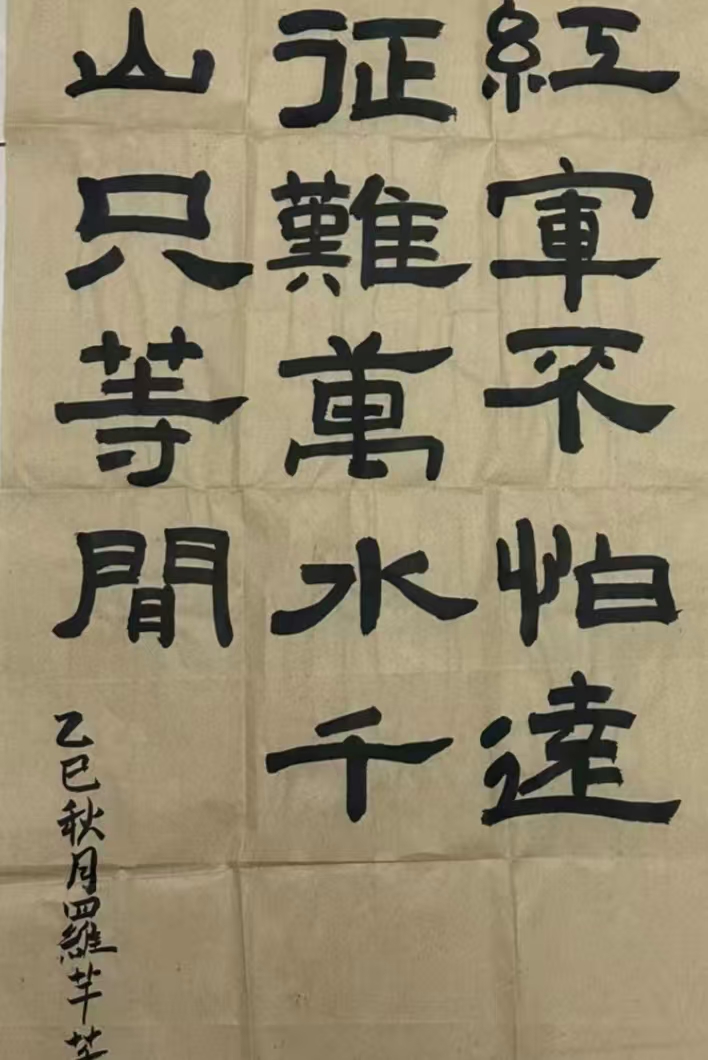 紅軍不怕遠
征難萬水千
山只等閒
乙巳秋月羅芊